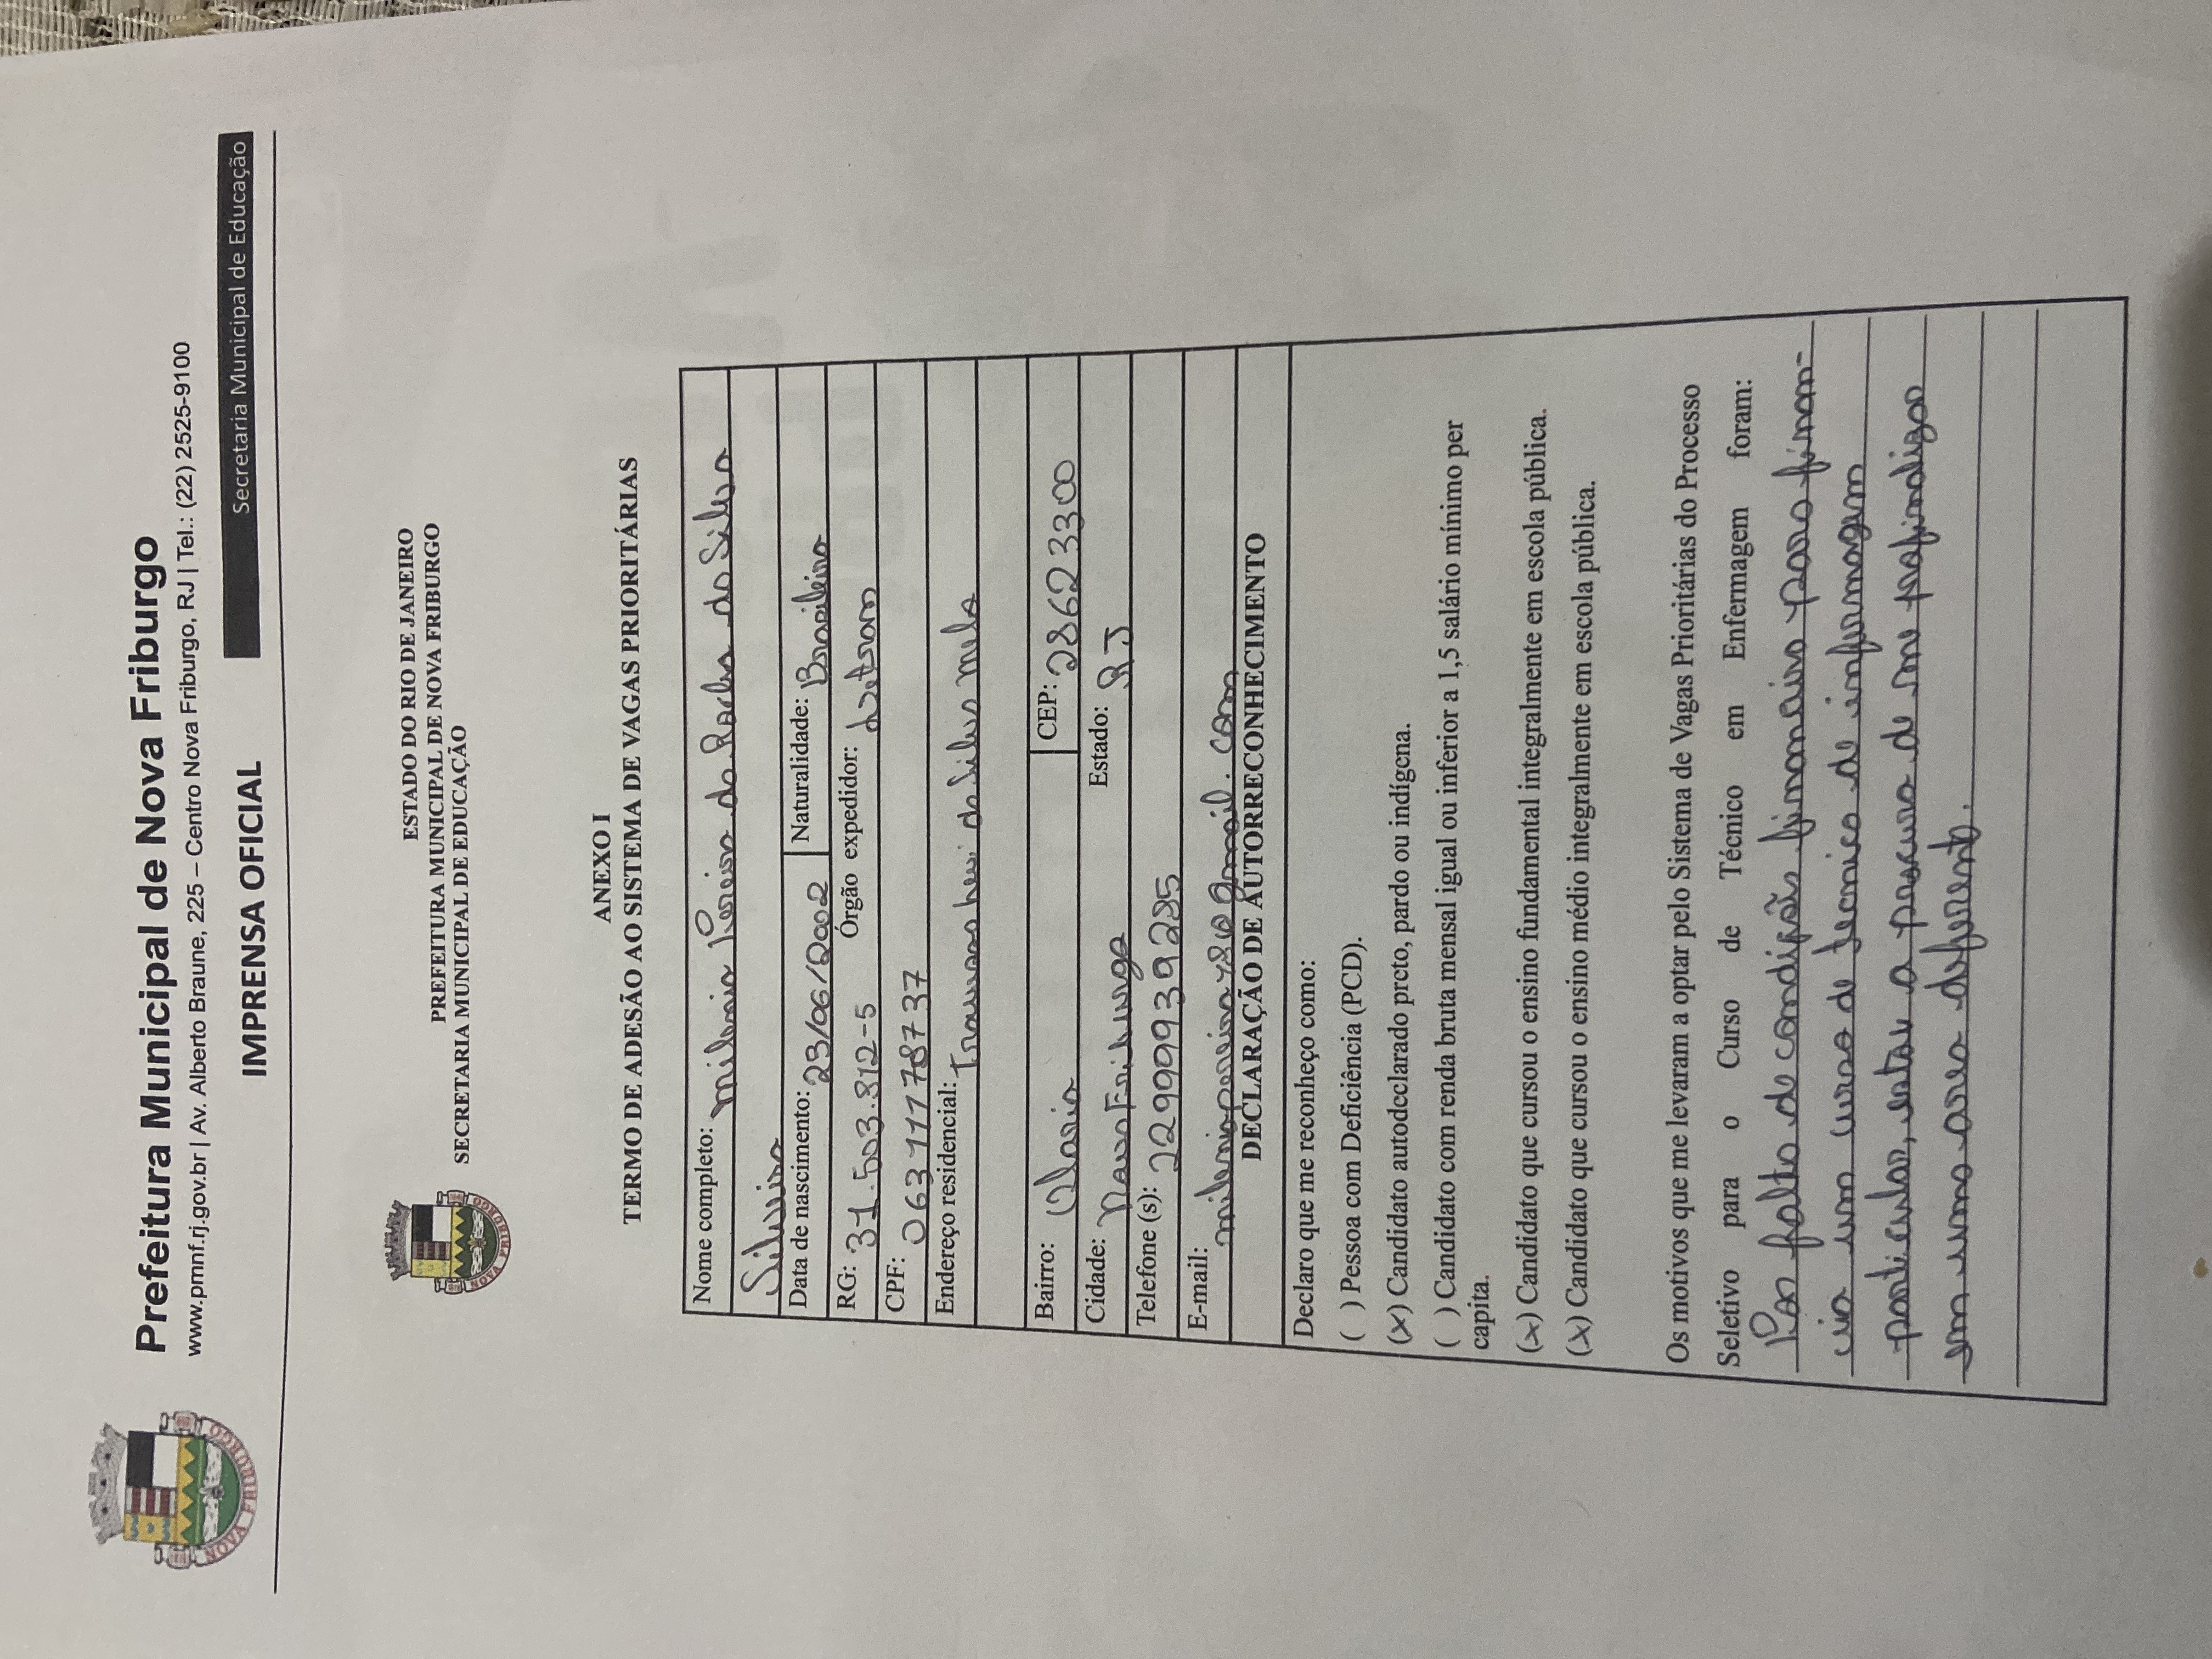 Prefeitura Municipal de Nova Friburgo
www.pmnf.rj.gov.br | Av. Alberto Braune, 225 – Centro Nova Friburgo, RJ | Tel.: (22) 2525-9100
IMPRENSA OFICIAL
Secretaria Municipal de Educação
NOVA FRIBURGO
ESTADO DO RIO DE JANEIRO
PREFEITURA MUNICIPAL DE NOVA FRIBURGO
SECRETARIA MUNICIPAL DE EDUCAÇÃO
NOVA FRIBURGO
ANEXO I
TERMO DE ADESÃO AO SISTEMA DE VAGAS PRIORITÁRIAS
Nome completo: Milenia Pereira da Rocha da Silva
Silveira
Data de nascimento: 23/06/2002 Naturalidade: Brasileira
RG: 31.503.812-5 Órgão expedidor: Detran
CPF: 06311178737
Endereço residencial: Travessa Levi da Silva Melo
Bairro: Olaria CEP: 28623300
Cidade: Nova Friburgo Estado: RJ
Telefone (s): 22999939285
E-mail:
DECLARAÇÃO DE AUTORRECONHECIMENTO
Declaro que me reconheço como:
( ) Pessoa com Deficiência (PCD).
(x) Candidato autodeclarado preto, pardo ou indígena.
( ) Candidato com renda bruta mensal igual ou inferior a 1,5 salário mínimo per
capita.
(x) Candidato que cursou o ensino fundamental integralmente em escola pública.
(x) Candidato que cursou o ensino médio integralmente em escola pública.
Os motivos que me levaram a optar pelo Sistema de Vagas Prioritárias do Processo
Seletivo para o Curso de Técnico em Enfermagem foram:
Por falta de financeira para finan-
cia um curso de tecnico de infermagem
particular, estou a procura de me profinalizar
em uma area deferente.